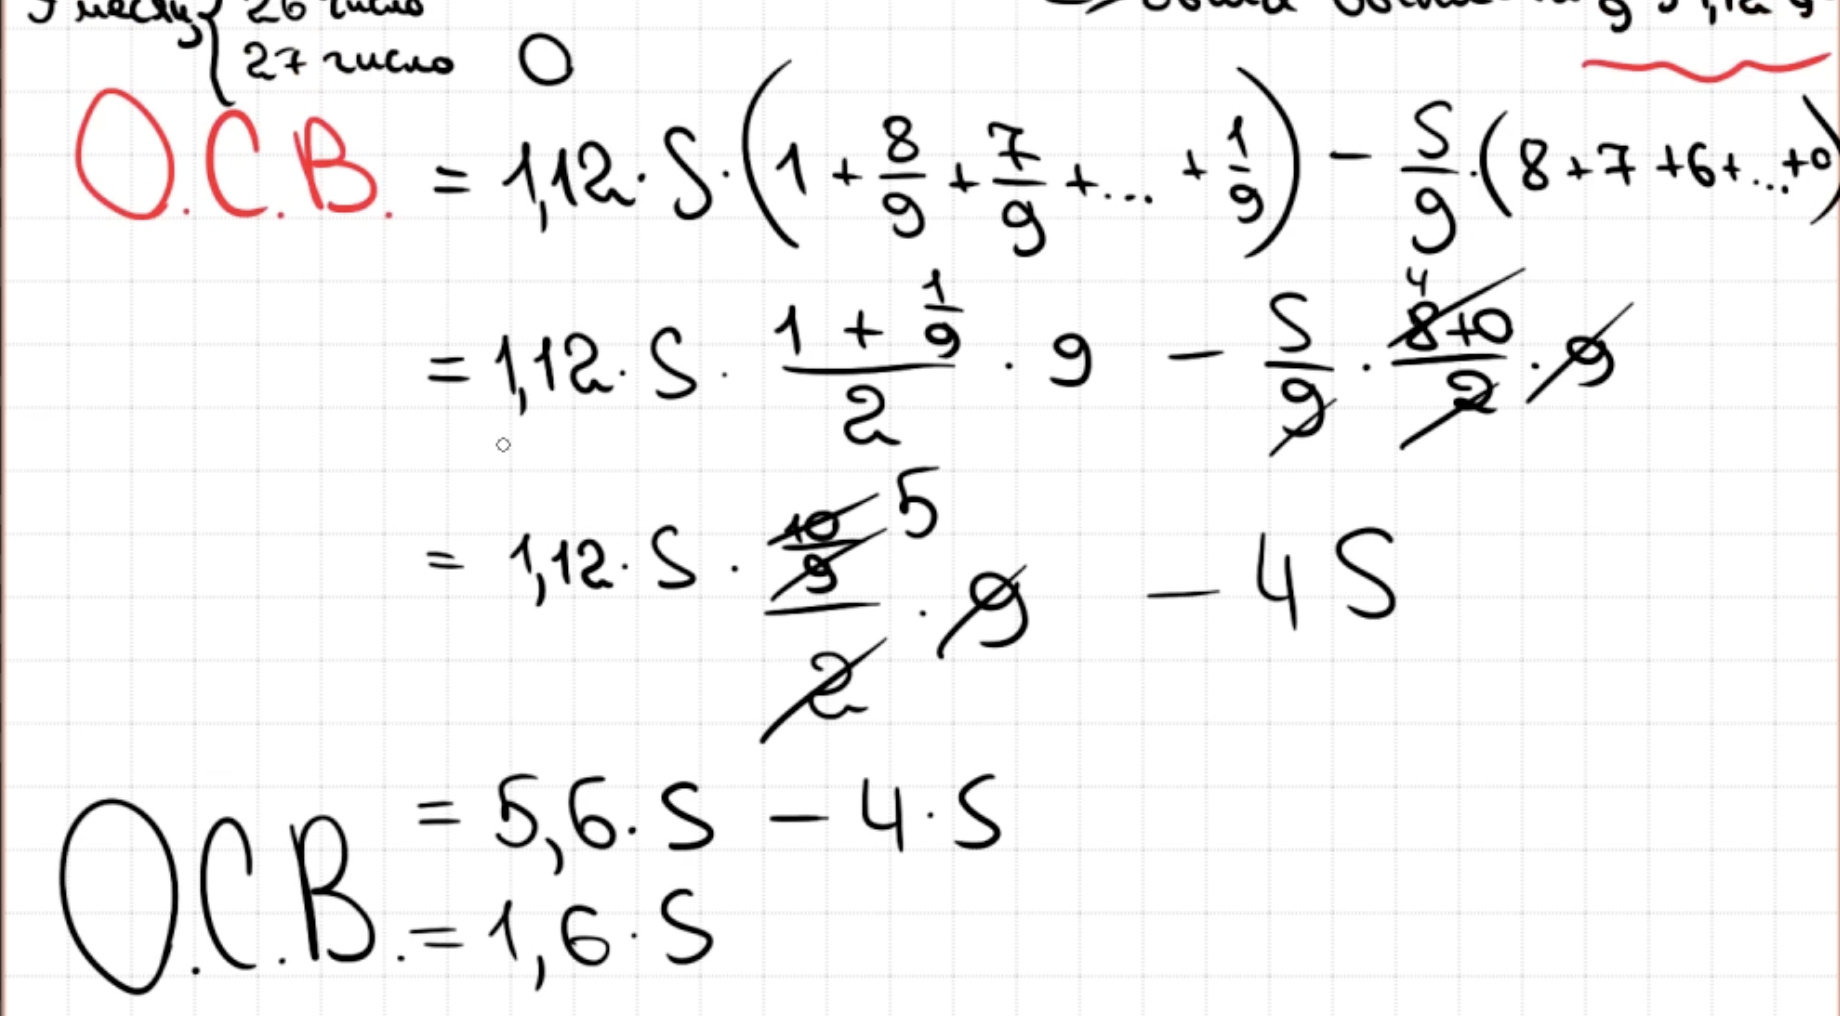 26 число
27 число 0
О.С.В. = 1,12 · S · (1 + 8/9 + 7/9 + ... + 1/9) − S/9 · (8 + 7 + 6 + ... + 0)
= 1,12 · S · (1 + 1/9)/2 · 9 − S/9 · (8+0)/2 · 9 4
= 1,12 · S · (10/9)/2 · 9 5 − 4S
= 5,6 · S − 4 · S
О.С.В. = 1,6 · S